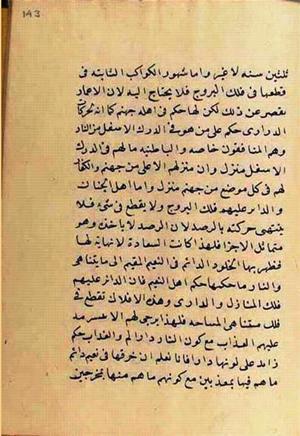 143
ثلثين سنه لا غير واما شهور الكواكب الثابته فى
قطعها فى فلك البروج فلا يحتاج اليه لان الاعمار
تقصر عن ذلك لكن لها حكم فى اهل جهنم كما انه لحركات
الدرارى حكم على من هو فى الدرك الاسفل من النار
وهم المنافقون خاصه والباطنيه ما لهم فى الدرك
الاسفل منزل وان منزلهم الاعلى من جهنم والكفار
لهم فى كل موضع من جهنم منزل واما اهل الجنات
والدائر عليهم فلك البروج ولا يقطع فى شىء فلا
ينتهى حركته بالرصد لان الرصد لا ياخذه وهو
متماثل الاجزا فلهذا كانت السعادة لا نهاية لها
فظهر بها الخلود الدائم فى النعيم المقيم الى ما يتناهى
والنار ما حكمها حكم اهل النعيم فان الدائر عليهم
فلك المنازل والدرارى وهذه الافلاك تقطع فى
فلك متناهى المساحه فلهذا يرجى لهم ان لا يسرمد
عليهم العذاب مع كون النار دار الم والعذاب حكم
زائد على كونها دارا فانا نعلم ان خزنتها فى نعيم دائم
ما هم فيها بمعذبين مع كونهم ما هم منها بمخرجين